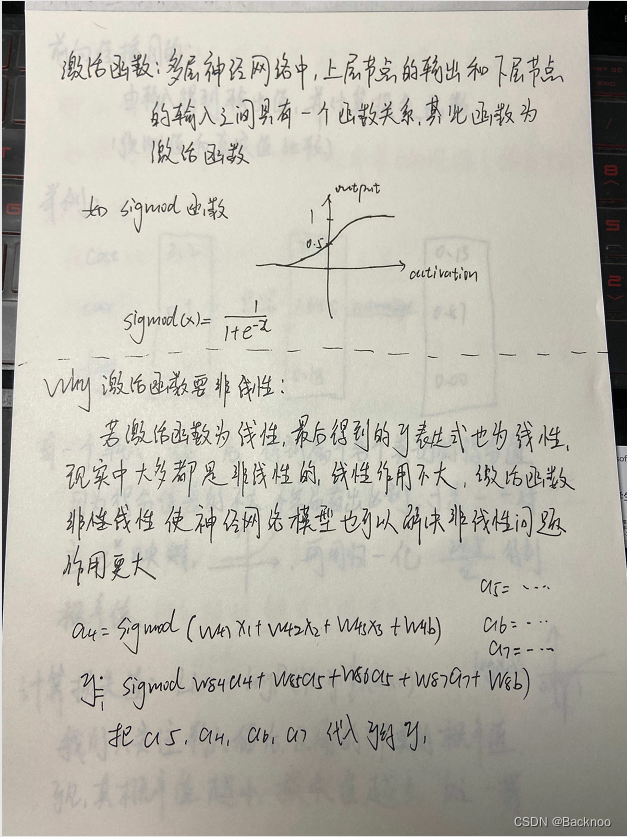 激活函数：多层神经网络中，上层节点的输出和下层节点
的输入之间具有一个函数关系，其此函数为
激活函数
如 sigmod 函数
output
1
0.5
activation
sigmod(x)= 1/(1+e^-x)
Why 激活函数要非线性：
若激活函数为线性，最后得到的y表达式也为线性，
现实中大多都是非线性的，线性作用不大，激活函数
非性线性 使神经网络模型也可以解决非线性问题
作用更大
a5= ...
a4= sigmod (w41x1+w42x2+w43x3+w4b)
a6= ...
a7= ...
y1= sigmod w84a4+w85a5+w86a5+w87a7+w8b)
把 a5, a4, a6, a7 代入 y1
CSDN @Backnoo